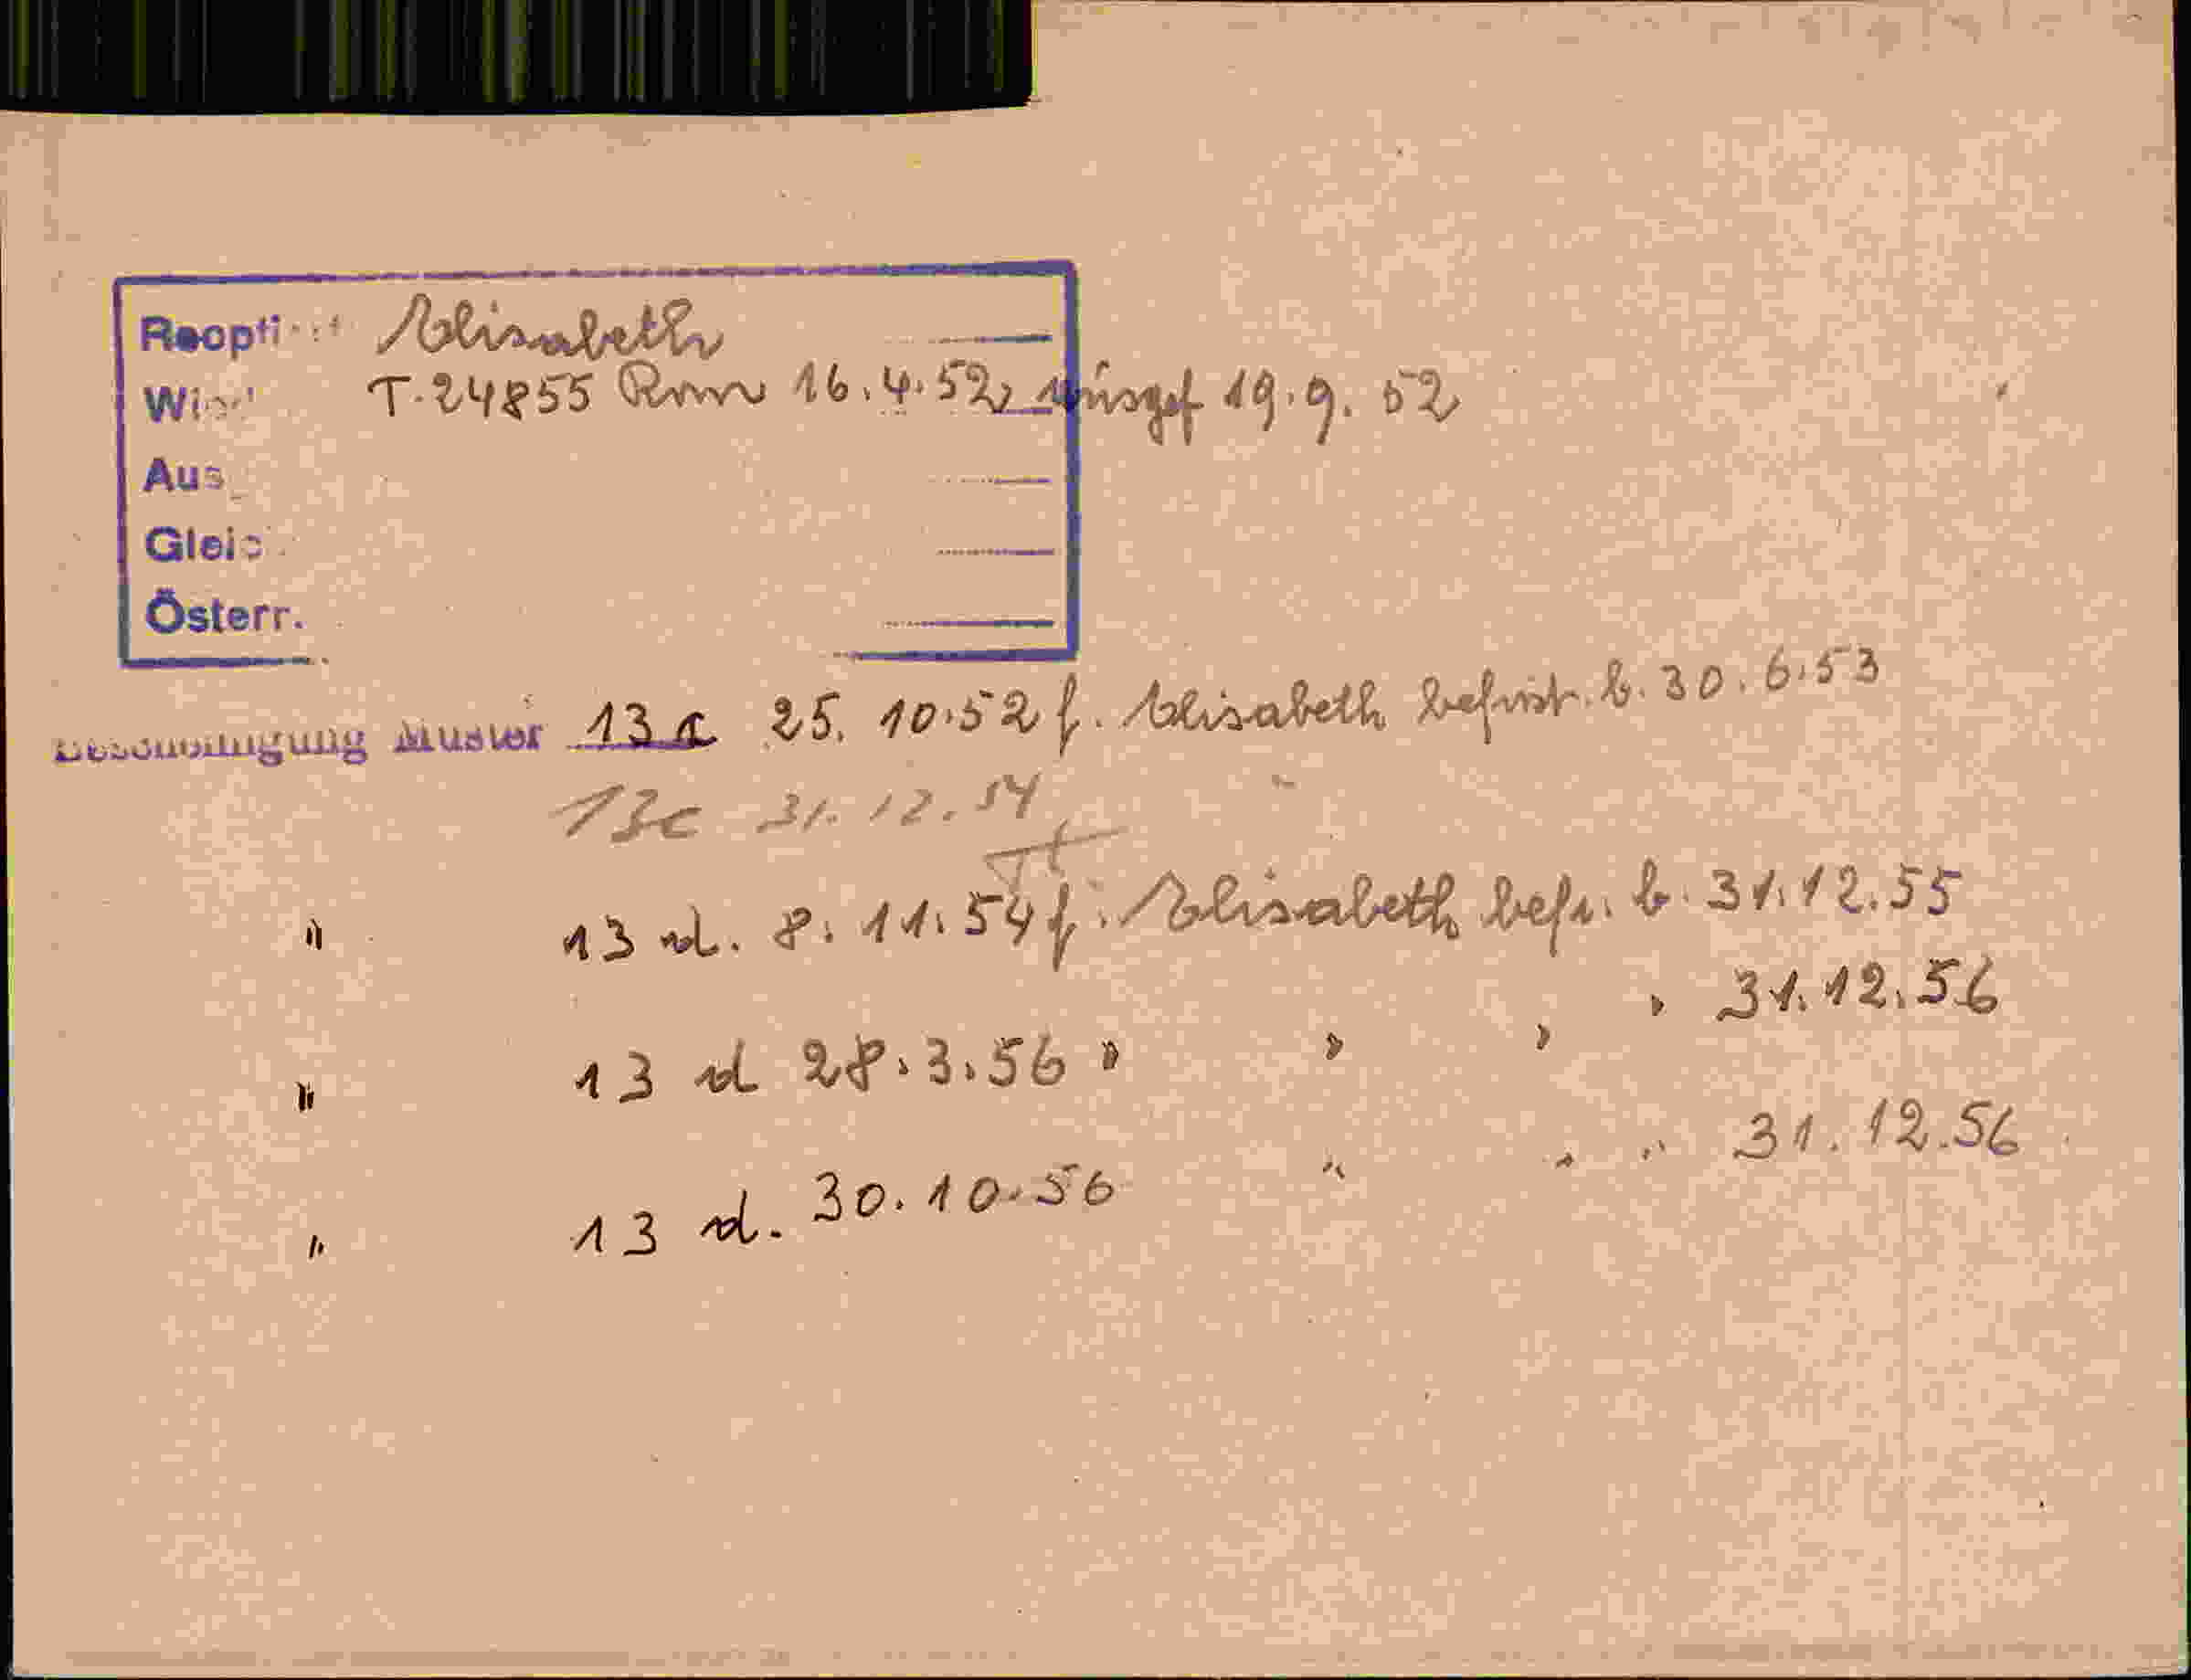 Reopti Elisabeth
Wi T. 24855 Rom 16.4.52 ausgef 19.9.52
Aus
Gleic
Österr.
Bescheinigung Muster 13 a 25.10.52 f. Elisabeth befrist. b. 30.6.53
13c 31.12.54
" 13 d. 8.11.54 f. Elisabeth befr. b. 31.12.55
" 13 d 28.3.56 " " " " 31.12.56
" 13 d. 30.10.56 " " " 31.12.56